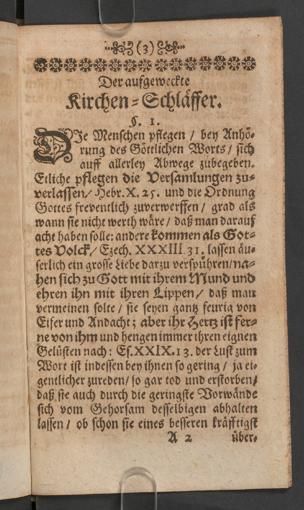 (3)
Der aufgeweckte
Kirchen-Schläffer.
§. 1.
DIe Menschen pflegen / bey Anhö-
rung des Göttlichen Worts / sich
auff allerley Abwege zubegeben.
Etliche pflegen die Versamlungen zu-
verlassen / Hebr. X. 25. und die Ordnung
Gottes freventlich zuverwerffen / grad als
wann sie nicht werth wäre / daß man darauf
acht haben solle: andere kommen als Got-
tes Volck / Ezech. XXXIII 31. lassen äu-
serlich ein grosse Liebe darzu verspühren / na-
hen sich zu Gott mit ihrem Mund und
ehren ihn mit ihren Lippen / daß man
vermeinen solte / sie seyen gantz feurig von
Eifer und Andacht; aber ihr Hertz ist fer-
ne von ihm und hengen immer ihren eignen
Gelüsten nach: Es. XXIX. 13. der Lust zum
Wort ist indessen bey ihnen so gering / ja ei-
gentlicher zureden / so gar tod und erstorben /
daß sie auch durch die geringste Vorwände
sich vom Gehorsam desselbigen abhalten
lassen / ob schon sie eines besseren kräfftigst
A 2 über-